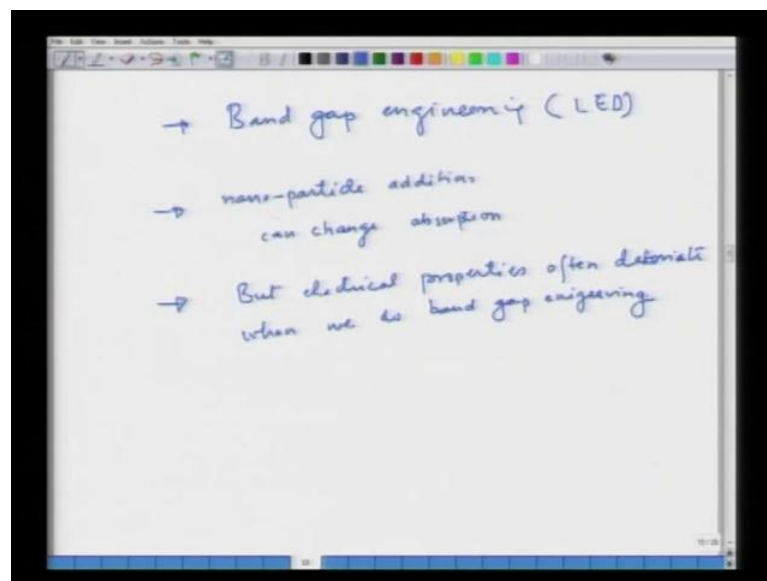 File Edit View Insert Actions Tools Help
→ Band gap engineering (LED)
→ nano-particle additions
can change absorption
→ But electrical properties often deteriorate
when we do band gap engineering